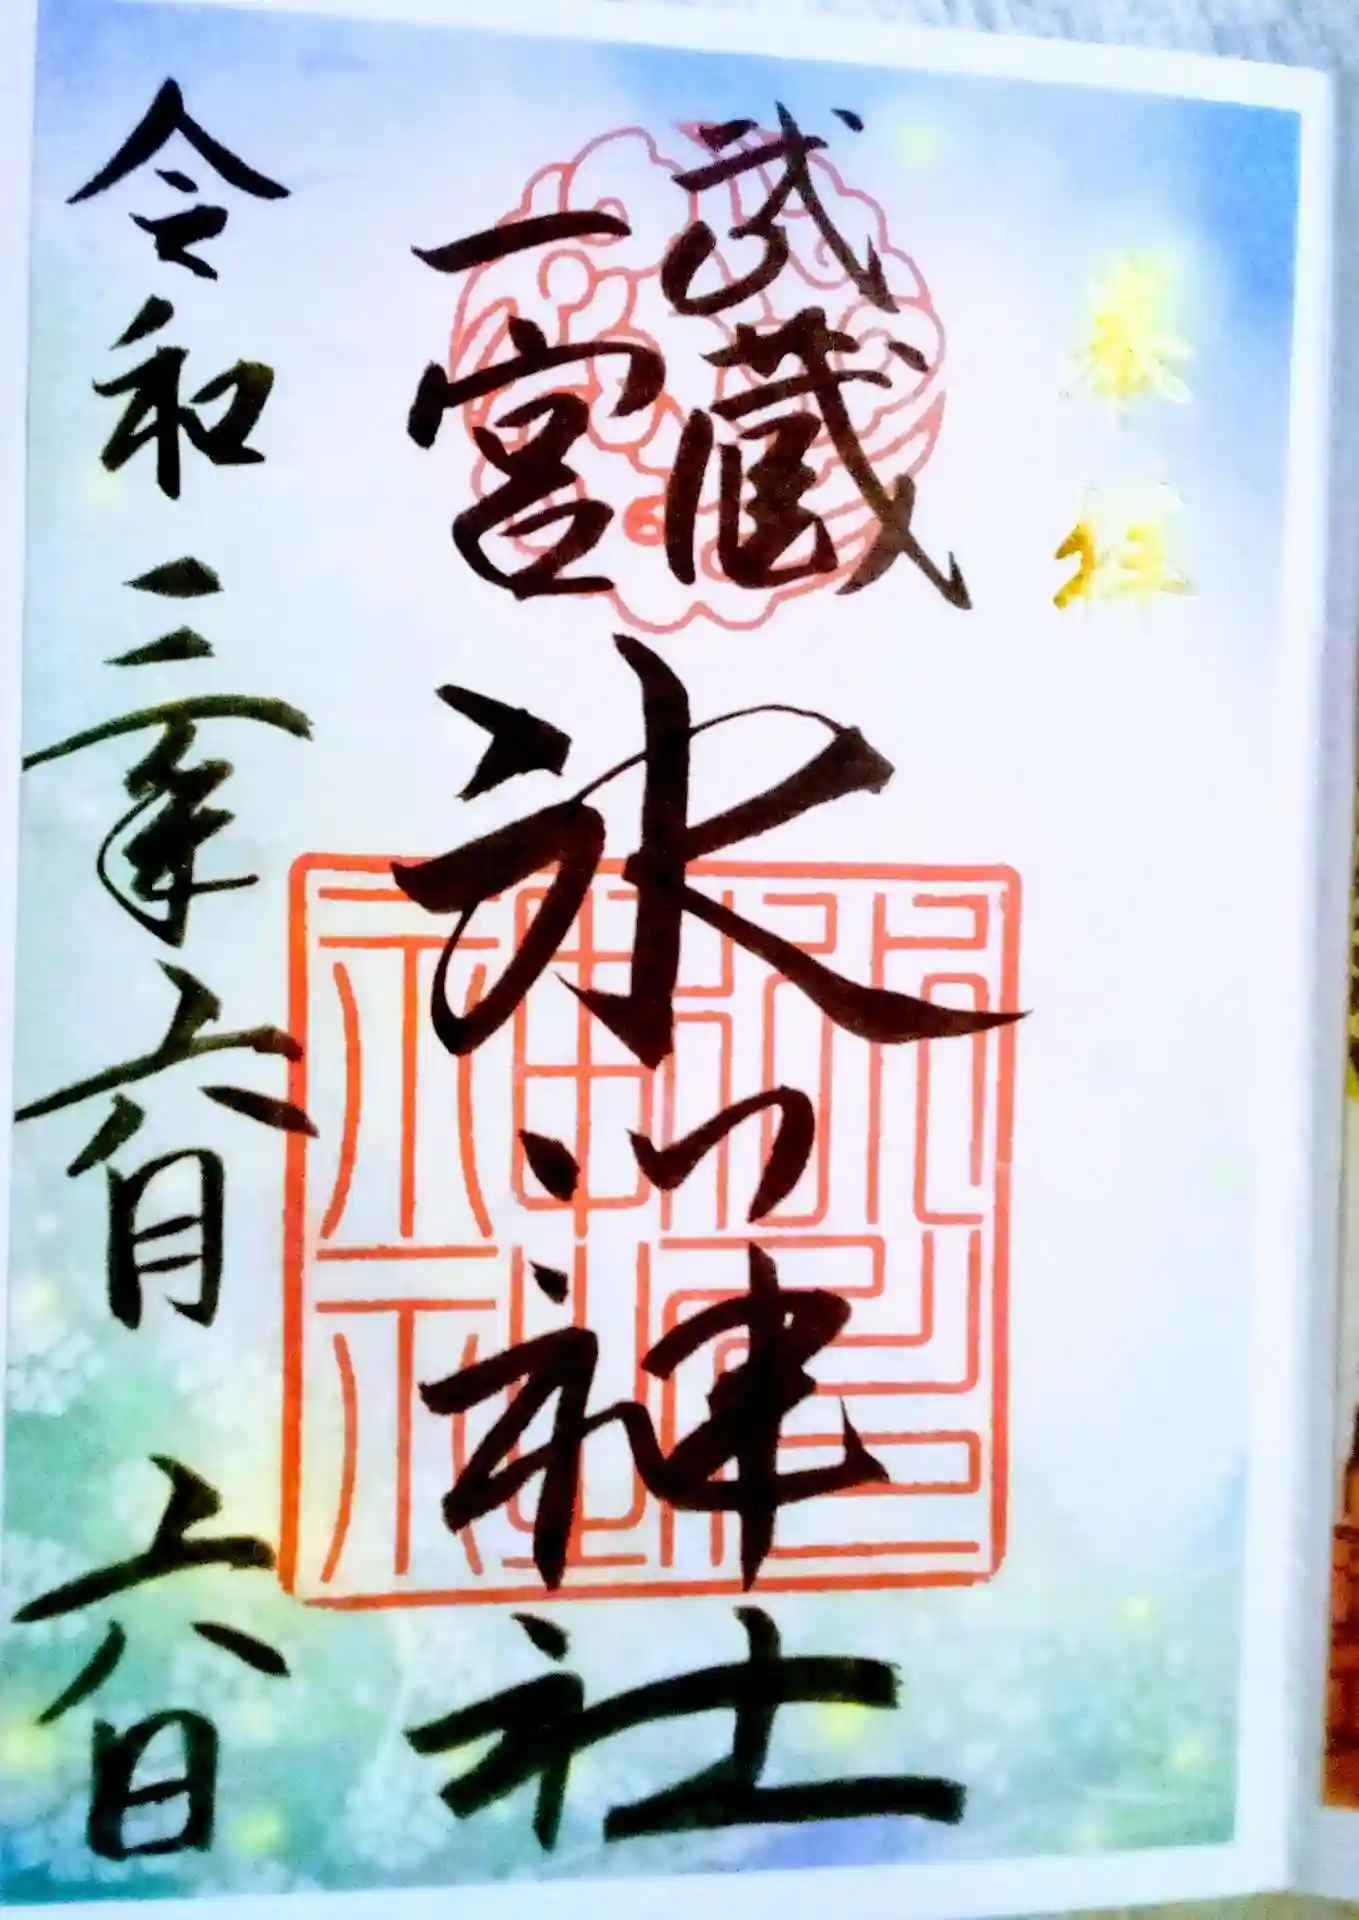 奉拝
武蔵
一宮
氷川神社
令和三年六月六日